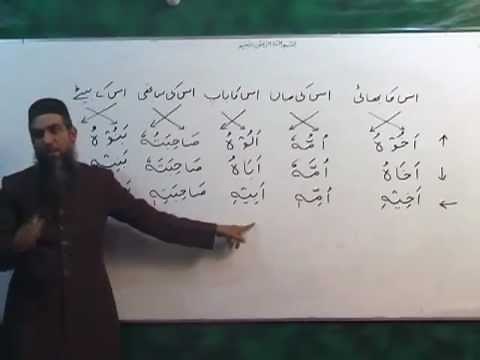 بسم اللہ الرحمٰن الرحیم
اس کا بھائی اس کی ماں اس کا باپ اس کی ساتھی اس کے بیٹے
↑ اَخُوْهُ اُمُّهٗ اَبُوْهُ صَاحِبَتُهٗ بَنُوْهُ
↓ اَخَاهُ اُمَّهٗ اَبَاهُ صَاحِبَتَهٗ بَنِيْهِ
← اَخِيْهِ اُمِّهٖ اَبِيْهِ صَاحِبَتِهٖ